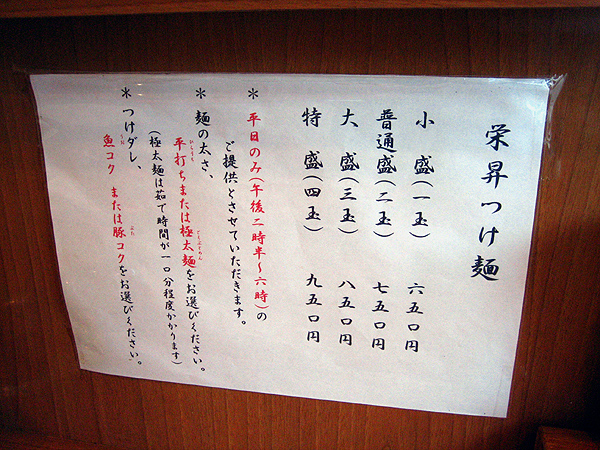 栄昇つけ麺
小 盛(一玉) 六五〇円
普通盛(二玉) 七五〇円
大 盛(三玉) 八五〇円
特 盛(四玉) 九五〇円
*平日のみ(午後二時半~六時)の
ご提供とさせていただきます。
*麺の太さ、
平打ちまたは極太麺をお選びください。
(極太麺は茹で時間が一〇分程度かかります)
*つけダレ、
魚コク または豚コクをお選びください。